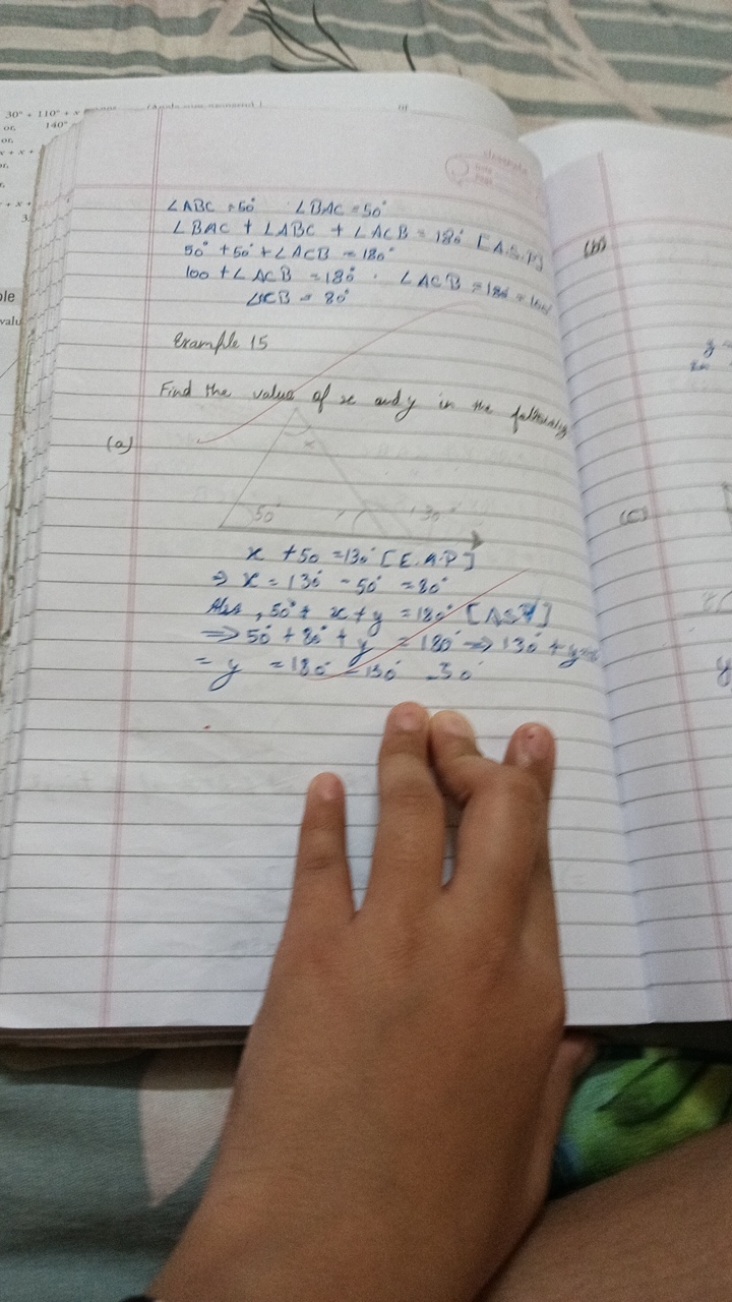 30° + 110° + x
or, 140°
or,
x + x +
+ x +
3
ple
valu
∠ABC = 50° ∠BAC = 50°
∠BAC + ∠ABC + ∠ACB = 180° [A.S.P]
50° + 50° + ∠ACB = 180°
100 + ∠ACB = 180° . ∠ACB = 180 -
∠ACB = 80°
Example 15
Find the value of x and y in the following
(a)
x
50° y 130°
x + 50 = 130° [E.A.P]
⇒ x = 130° - 50° = 80°
Also, 50° + x + y = 180° [ASP]
⇒ 50° + 80° + y = 180° ⇒ 130° + y =
= y = 180° - 130° - 50°
(b)
y =
(c)
y